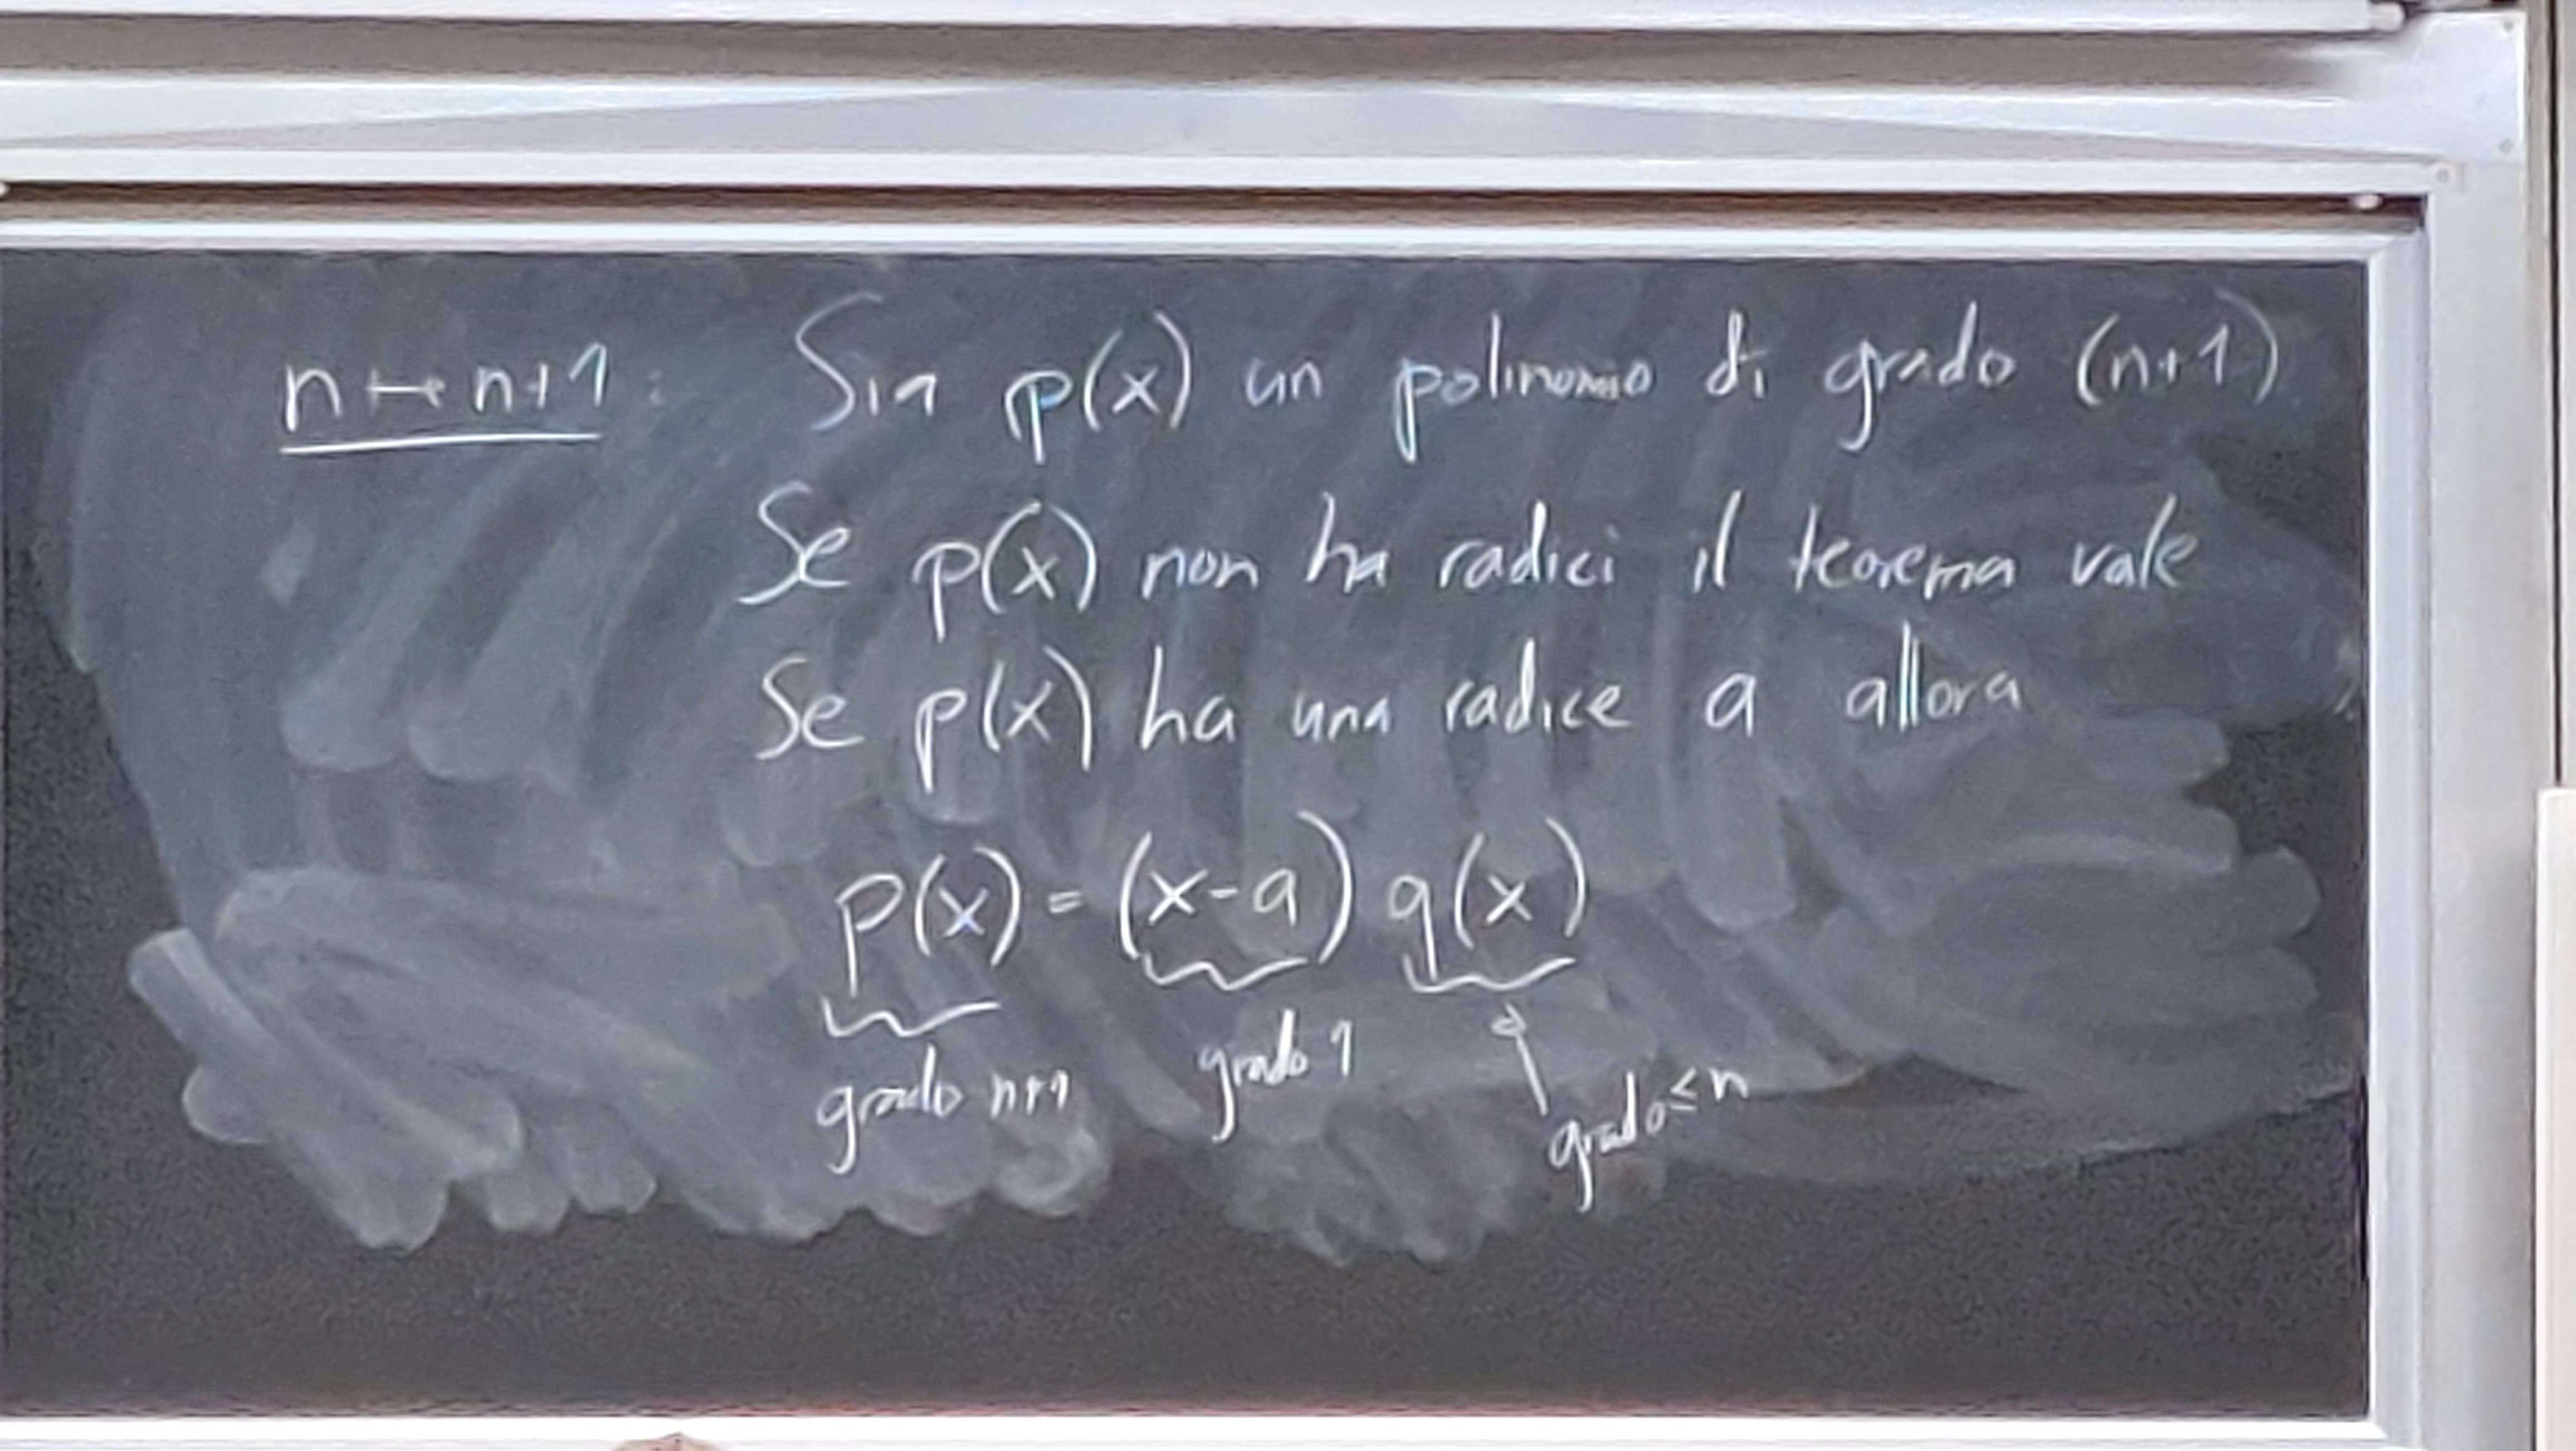 n → n+1 : Sia p(x) un polinomio di grado (n+1)
Se p(x) non ha radici il teorema vale
Se p(x) ha una radice a allora
p(x) = (x-a) q(x)
grado n+1 grado 1 grado ≤ n